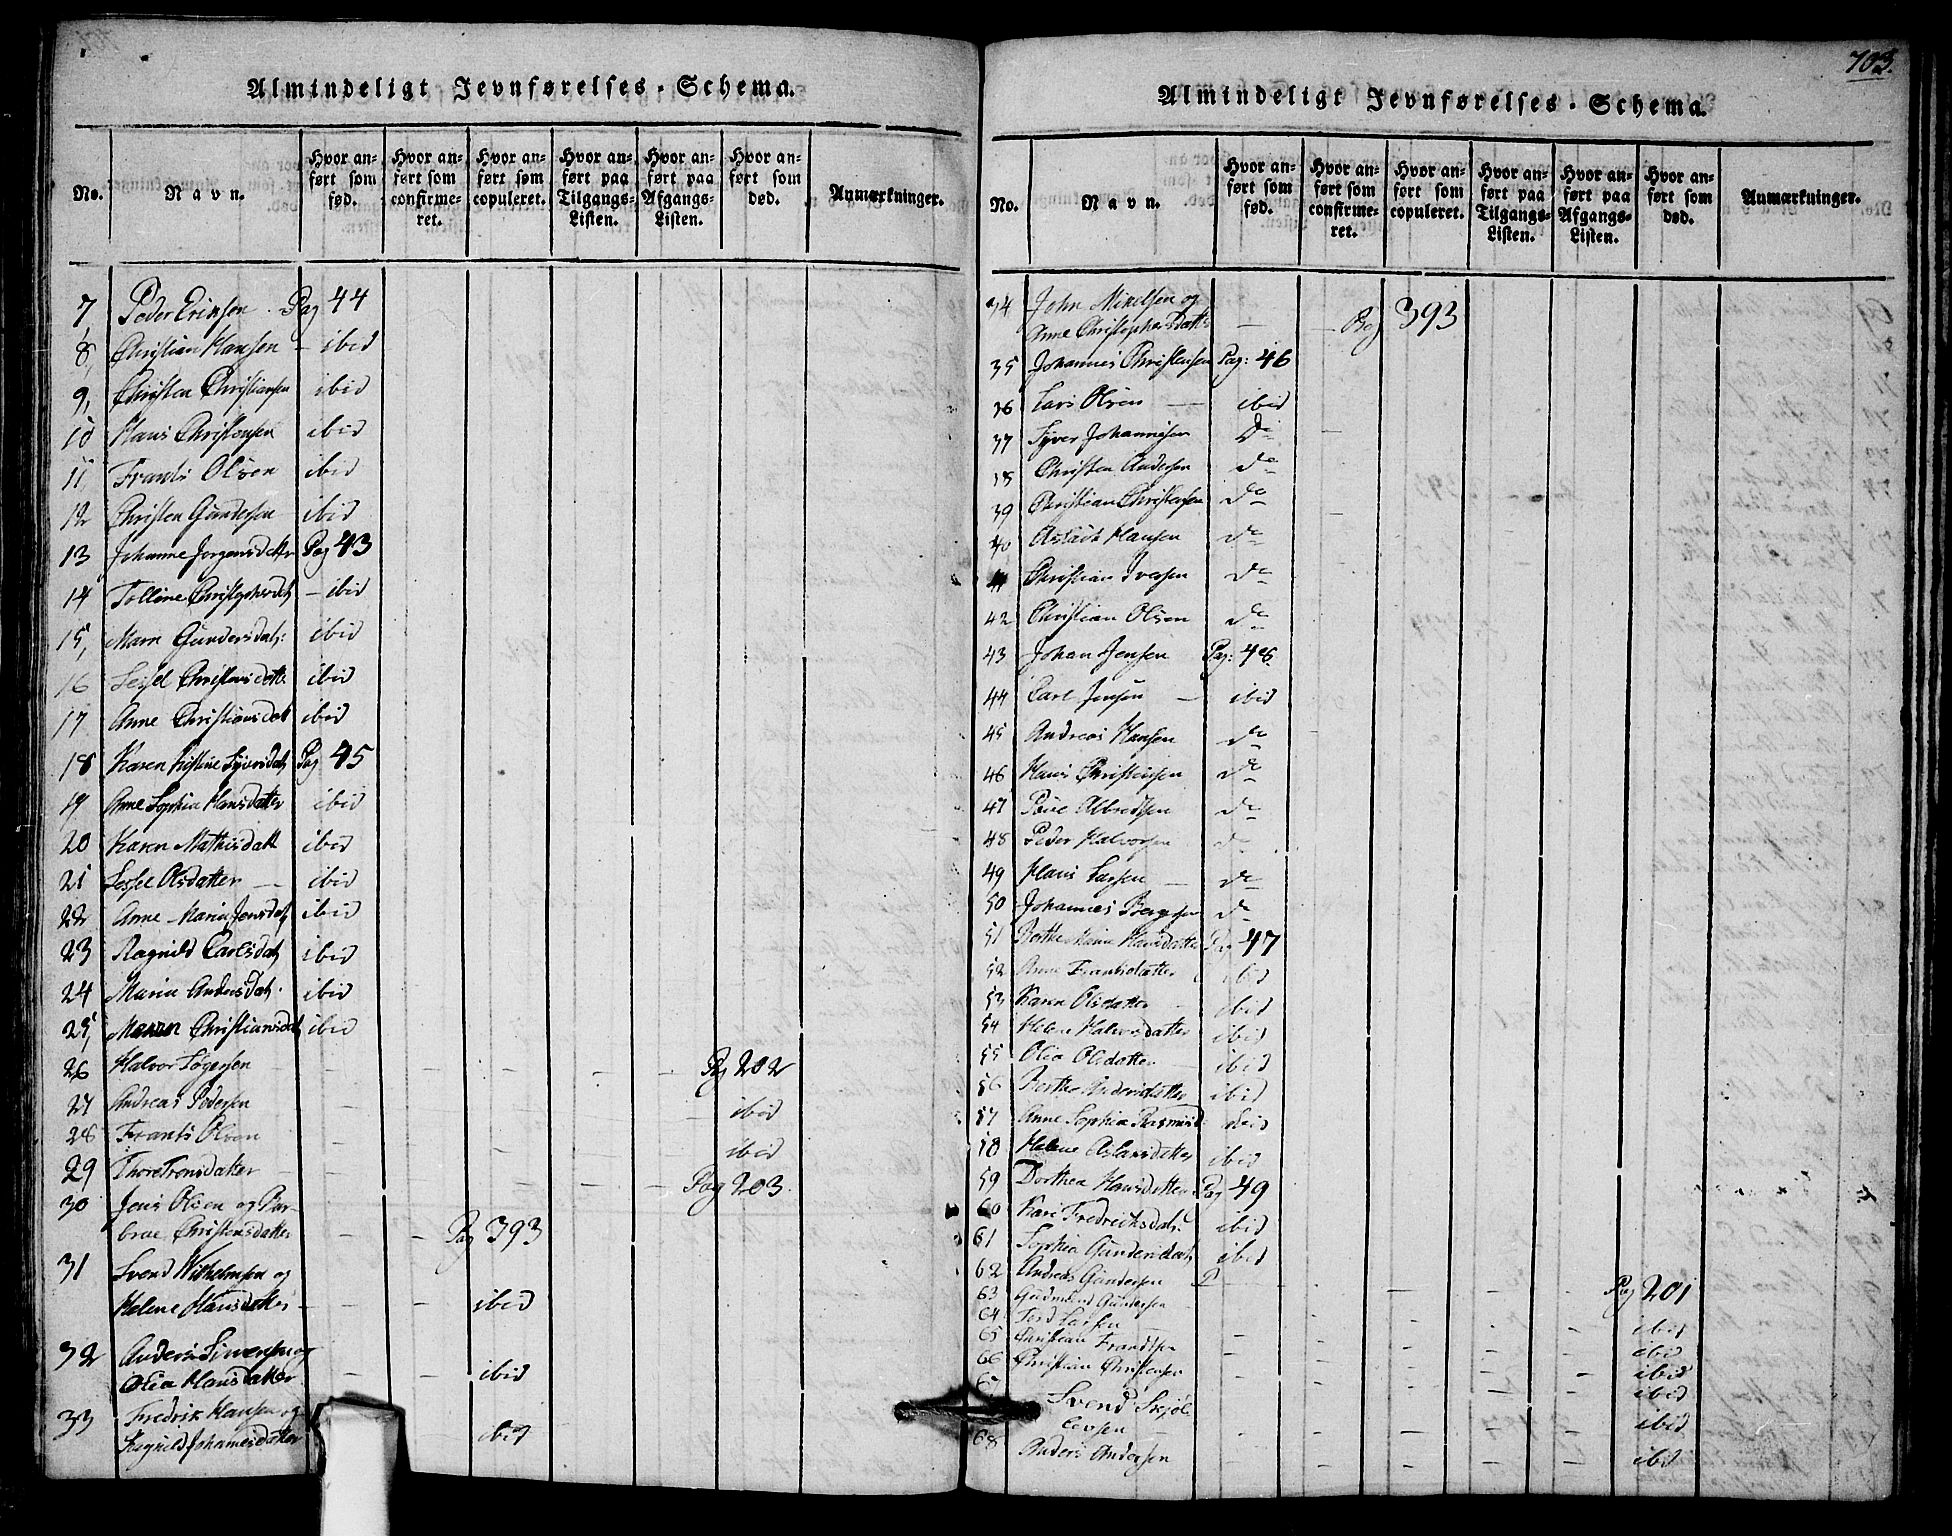 Almindeligt Jevnførelses-Schema.
No.
Navn.
Hvor anført som fød.
Hvor anført som confirmeret.
Hvor anført som copuleret.
Hvor anført paa Tilgangs-Listen.
Hvor anført paa Afgangs-Listen.
Hvor anført som død.
Anmærkninger.
7, Peder Eriksen. Pag 44
8, Christian Hansen - ibid
9, Christen Christiansen ibid
10 Hans Christensen ibid
11 Frants Olsen ibid
12 Christen Gundersen ibid
13 Johanne Jorgensdattr Pag 43
14 Tolline Christophersdat - ibid
15, Maren Gundersdat: ibid
16 Sessel Christensdatt ibid
17 Anne Christiansdatt ibid
18 Karen Kistine Syversdat Pag 45
19 Anne Sophia Hansdatter ibid
20 Karen Mathisdatt ibid
21 Sessel Olsdatter - ibid
22 Anne Maria Jensdat ibid
23 Ragnild Carlsdat ibid
24 Maria Andersdat. ibid
25, Maren Christiansdat ibid
26 Halvor Segersen - - - - - Pag 202
27 Andreas Pedersen - - ibid
28 Frants Olsen - ibid
29 Thore Tronsdatter - - - - - Pag 203.
30 Jens Olsen og Bar-
brae Christensdatter - - Pag 393
31 Svend Wilhelmsen og
Helene Hansdatter - - - ibid
32 Anders Simensen og
Olia Hansdatter - - ibid
33 Fredrik Hansen og
Ragnild Johannesdatter ibid
703.
Almindeligt Jevnførelses-Schema.
No.
Navn.
Hvor anført som fød.
Hvor anført som confirmeret.
Hvor anført som copuleret.
Hvor anført paa Tilgangs-Listen.
Hvor anført paa Afgangs-Listen.
Hvor anført som død.
Anmærkninger.
34 John Mikelsen og
Anne Christophersdattr - - Pag 393
35 Johannes Christensen Pag: 46
36 Lars Olsen - ibid
37 Syver Johannesen Do
38 Christen Andersen do
39 Christian Christensen do
40 Aslach Hansen do
41 Christian Iversen do
42 Christian Olsen do
43 Johan Jensen Pag: 48.
44 Carl Jensen - ibid
45 Andreas Hansen do
46 Hans Christensen do
47 Povel Albretsen do
48 Peder Halvorsen do
49 Hans Larsen - do
50 Johannes Børgesen do
51 Berthe Maria Hansdatter Pag 47
52 Anne Frantsdatter ibid
53 Karen Olsdatter ibid
54 Helene Halvorsdatter ibid
55 Olia Olsdatter ibid
56 Berthe Andersdatter ibid
57 Anne Sophia Rasmusd ibid
58 Helene Aslansdatter ibid
59 Dorthea Hansdatter Pag 49
60 Kari Fredriksdat: ibid
61 Sophia Gundersdat, ibid
62 Andreas Gundersen - - - - - Pag 201
63 Gudmund Gundersen ibid
64 Tord Larsen - - - - - ibid
65 Christian Frandtsen - - - - - ibid
66 Christian Christensen - - - - ibid
67 Svend Skjøl
levsen - - - - - ibid
68 Anders Andersen - - - - ibid